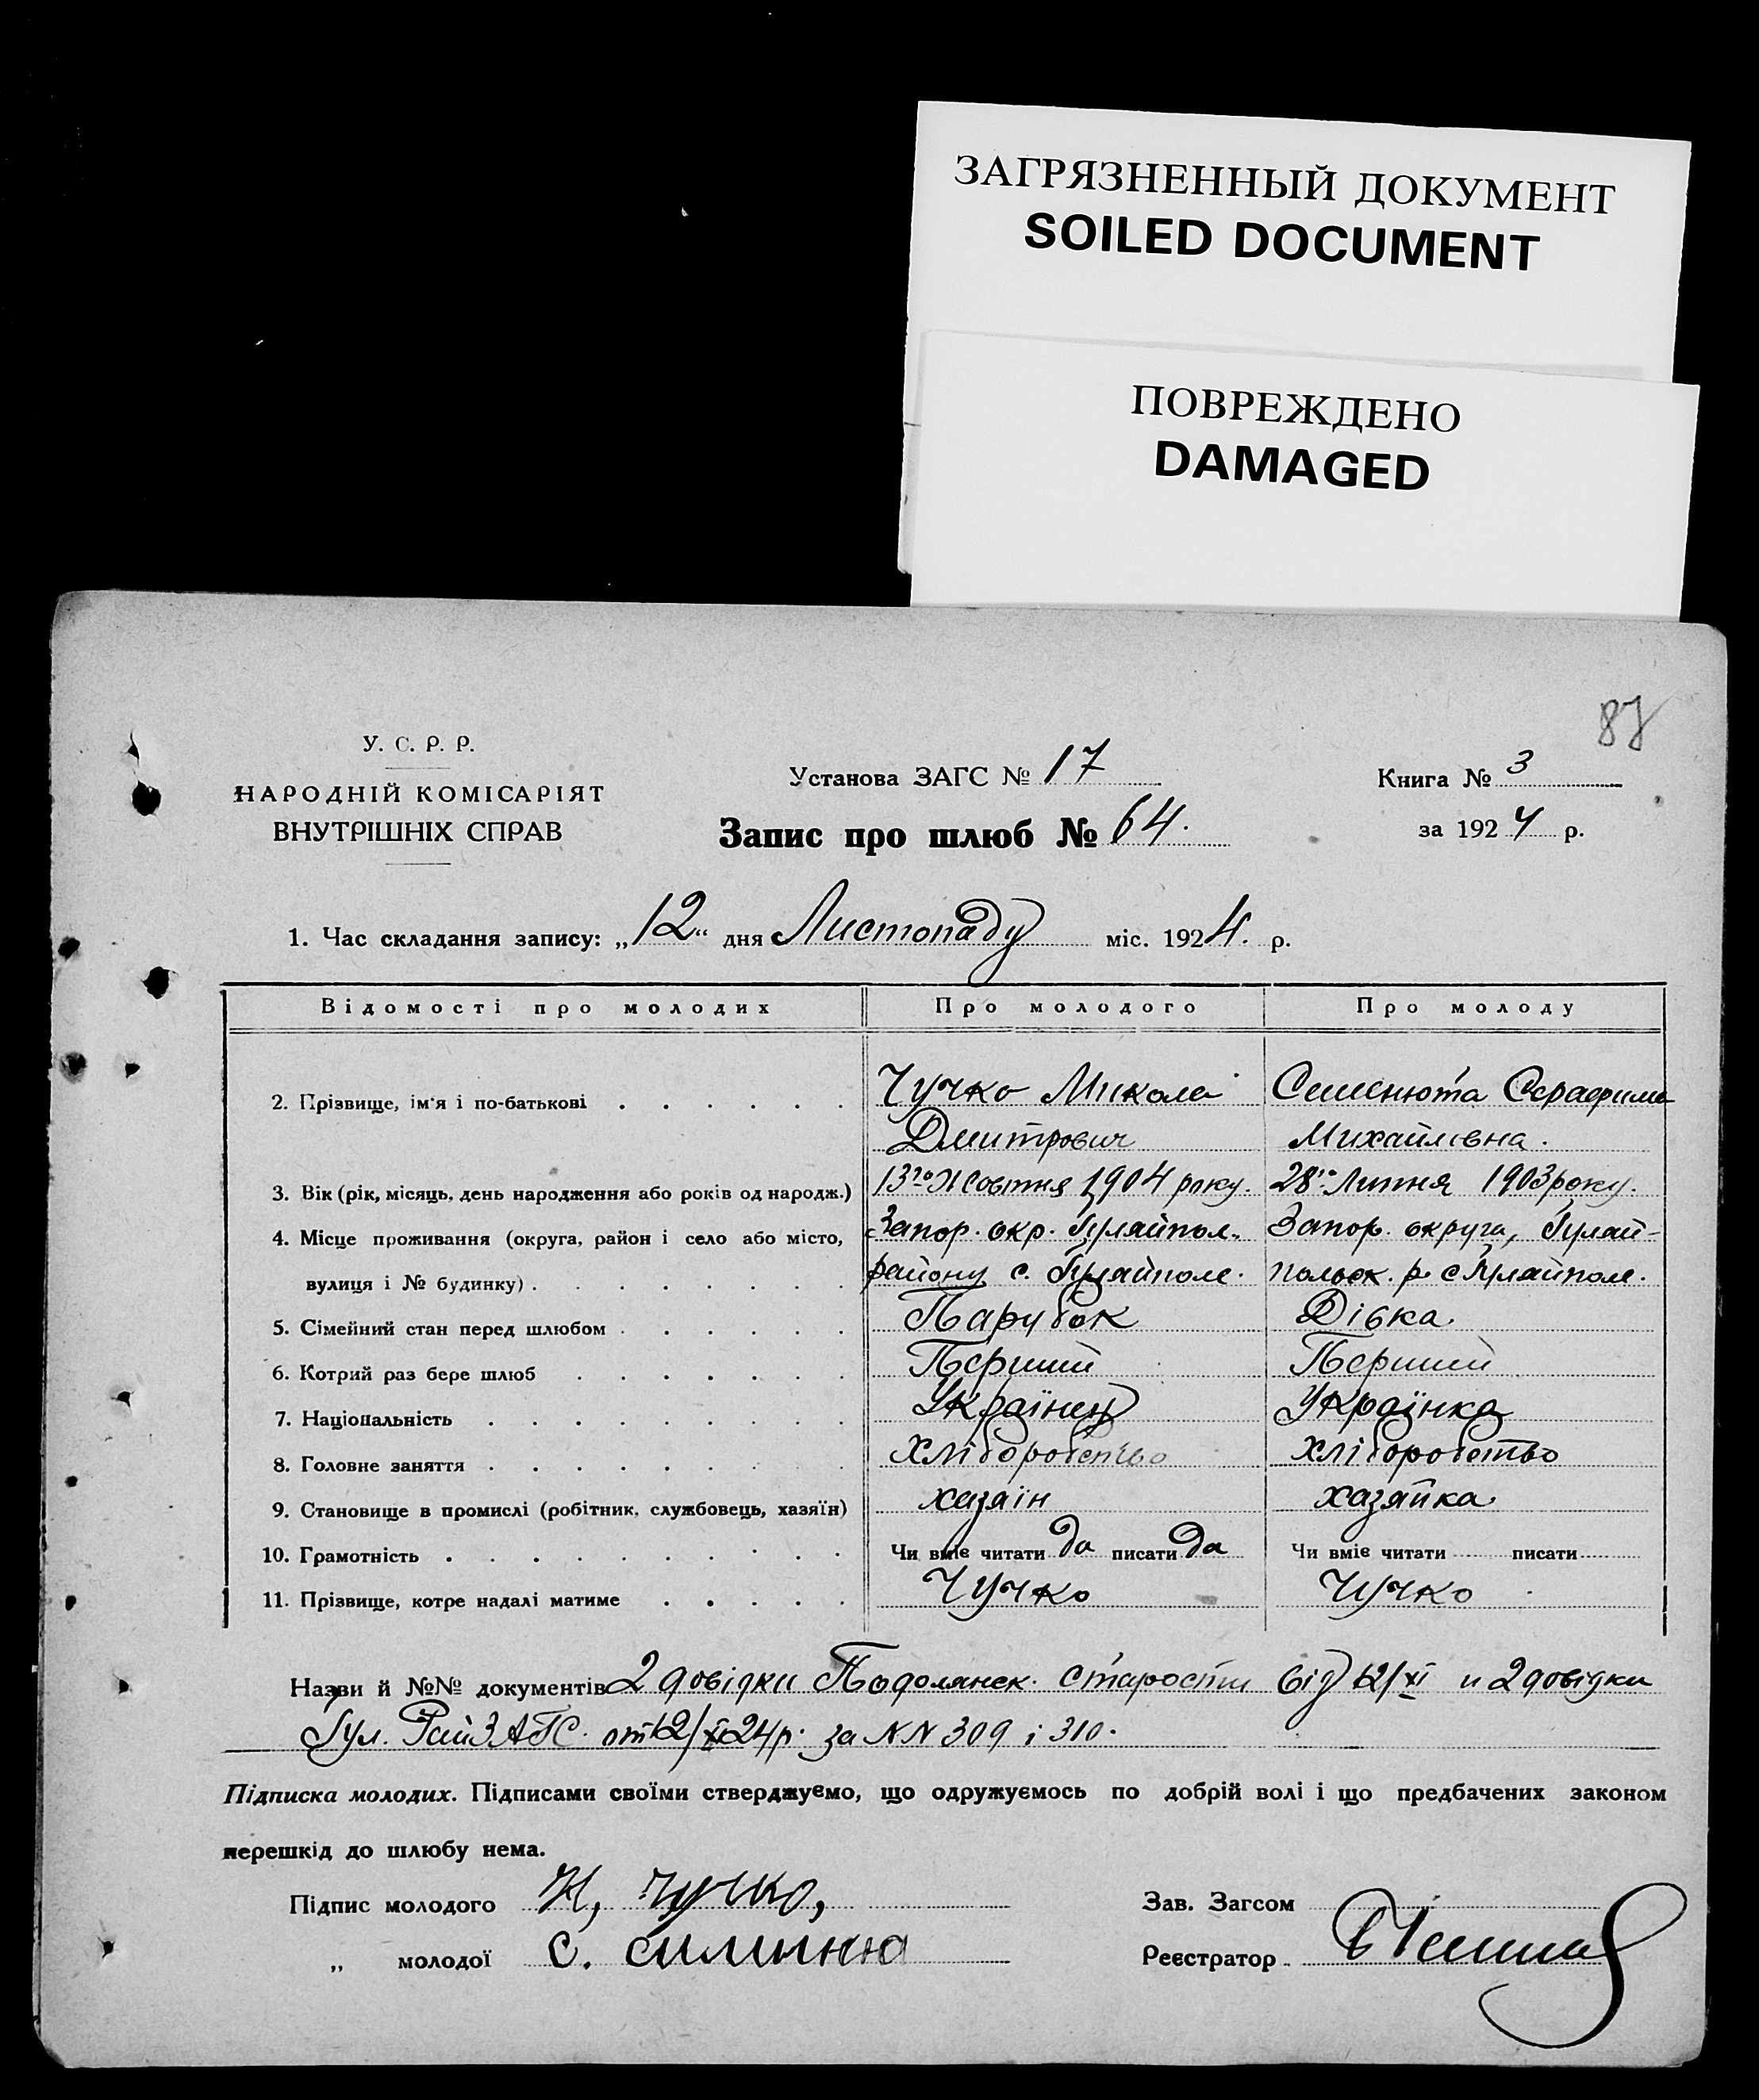 ЗАГРЯЗНЕННЫЙ ДОКУМЕНТ
SOILED DOCUMENT
ПОВРЕЖДЕНО
DAMAGED
87
У. С. Р. Р.
НАРОДНІЙ КОМІСАРІЯТ
ВНУТРІШНІХ СПРАВ
Установа ЗАГС № 17
Книга № 3
Запис про шлюб № 64.
за 1924 р.
1. Час складання запису: „12“ дня Листопаду міс. 1924. р.
Відомості про молодих Про молодого Про молоду
2. Прізвище, ім'я і по-батькові Чучко Миколай Семенюта Серафима
Дмитрович Михайлівна.
3. Вік (рік, місяць, день народження або років од народж.) 13го Жовтня 1904 року. 28го Липня 1903 року.
4. Місце проживання (округа, район і село або місто, Запор. окр. Гуляйпол. Запор. округа, Гуляй-
вулиця і № будинку) району с. Гуляйполе. польск. р. с Гуляйполе.
5. Сімейний стан перед шлюбом Парубок Дівка.
6. Котрий раз бере шлюб Перший Перший
7. Національність Українец Українка
8. Головне заняття Хліборобство хліборобство
9. Становище в промислі (робітник, службовець, хазяїн) хазяїн хазяйка
10. Грамотність Чи вміє читати да писати да Чи вміє читати писати
11. Прізвище, котре надалі матиме Чучко Чучко
Назви й №№ документів 2 довідки Подолянск. старости від 12/XI и 2 довідки
Гул. РайЗАГС. от 12/XI 24 р. за NN 309 і 310.
Підписка молодих. Підписами своїми стверджуємо, що одружуємось по добрій волі і що предбачених законом
перешкід до шлюбу нема.
Підпис молодого Н, Чучко,
Зав. Загсом
„ молодої С.
Реєстратор